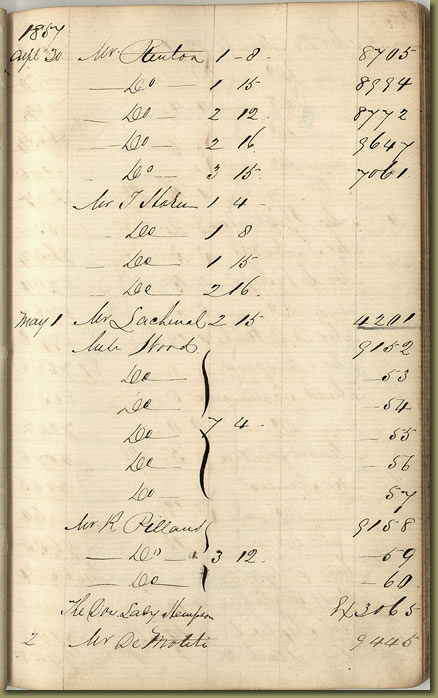 1857
Apl 30 Mr Renton 1 - 8 - 8705
— Do — 1 15 8994
— Do 2 12 8772
— Do 2 16 9647
Do — 3 15 7061
Mr 1 4 -
Do 1 8
— Do 1 15
— Do 2 16 -
May 1 Mr Lachenal 2 15 4201
Wood 9152
Do — 53
Do — 54
Do 7 4 - — 55
Do — 56
Do — 57
Mr R 9158
— Do 3 12 - — 59
— Do — 60
The Dow Lady 3065
2 Mr De 9445